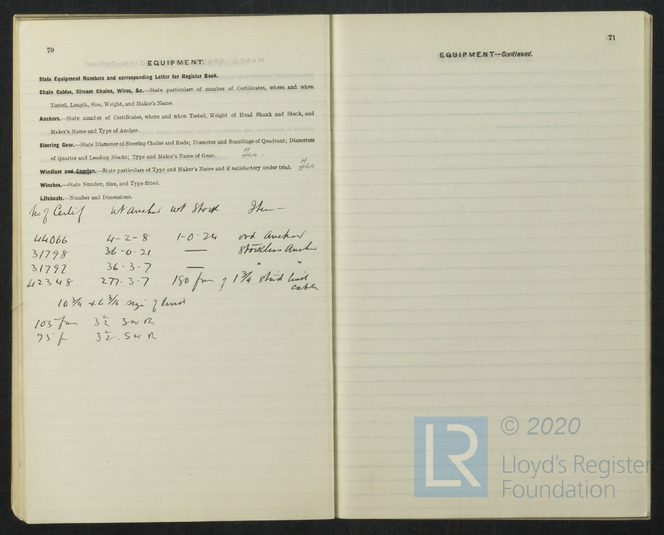 70
EQUIPMENT.
State Equipment Numbers and corresponding Letter for Register Book.
Chain Cables, Stream Chains, Wires, &c.—State particulars of number of Certificates, where and when
Tested, Length, Size, Weight, and Maker's Name.
Anchors.—State number of Certificates, where and when Tested, Weight of Head Shank and Stock, and
Maker's Name and Type of Anchor.
Steering Gear.—State Diameter of Steering Chains and Rods; Diameter and Scantlings of Quadrant; Diameters
of Quarter and Leading Blocks; Type and Maker's Name of Gear. Yes.
Windlass and Capstan.—State particulars of Type and Maker's Name and if satisfactory under trial. Yes
Winches.—State Number, Size, and Type fitted.
Lifeboats.—Number and Dimensions.
No of Certif Wt Anchor Wt Stock Item
44066 4-2-8 1-0-24 ord Anchor
31798 36-0-21 — Stockless Anchor
31797 36-3-7 — " "
42348 277-3-7 180 fm of 1 3/4 stud link
cable
10 3/4 + 6 3/4 of link
105 fm 3½ SWR
75 f 3½ SWR
71
EQUIPMENT—Continued.
LR
© 2020
Lloyd's Register
Foundation